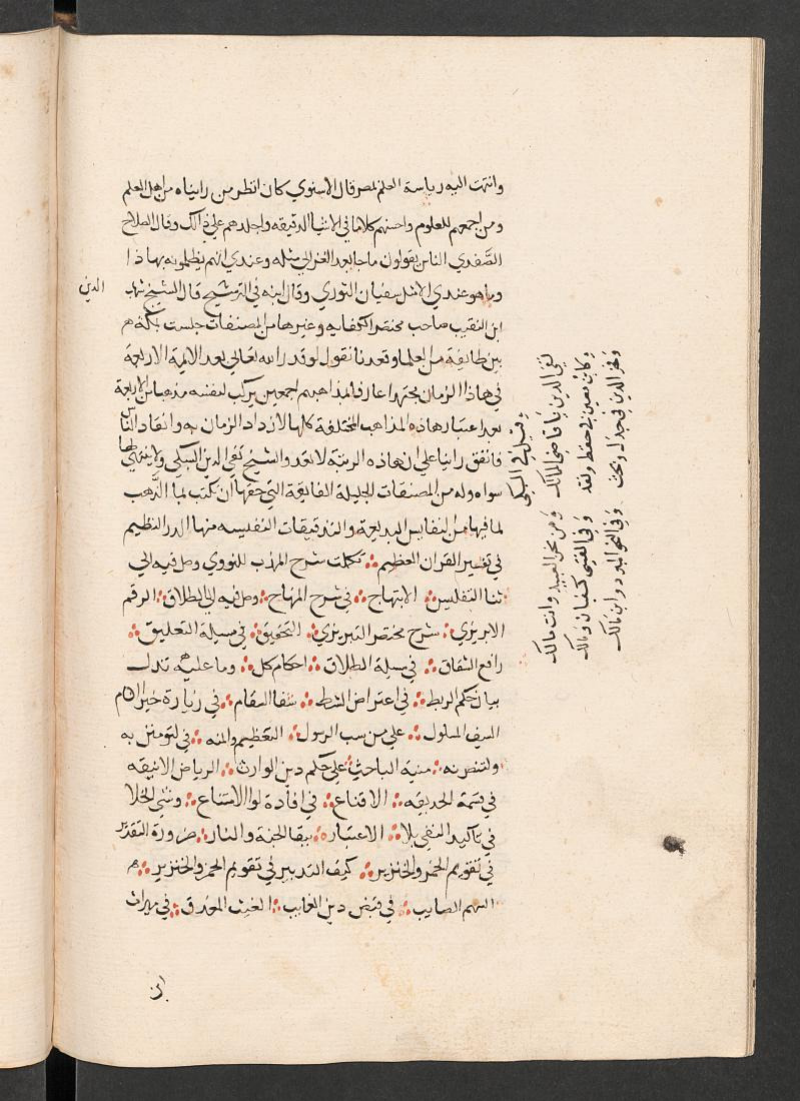 وانتهت اليه رياسة العلم لمصر قال الاسنوي كان انظر من رايناه من اهل العلم
ومن اجمعهم للعلوم واحسنهم كلاما في الاشيا الدقيقه واجلدهم علي ذالك وقال الصلاح
الصفدي الناس يقولون ما جا بعد الغزالي مثله وعندي انهم يظلمونه بهاذا
وما هو عندي الا مثل سفيان الثوري وقال ابنه في الترشيح قال الشيخ شهاب
الدين
ابن النقيب صاحب مختصر الكفايه وغيرها من المصنفات جلست بمكة
بين طايفة من العلما وقعدنا نقول لو قدر الله تعالي بعد الايمة الاربعة
في هاذا الزمان مجتهدا عارفا بمذاهبهم اجمعين يركب لنفسه مذهبا من الاربعة
بعد اعتبار هاذه المذاهب المختلفة كلها لازداد الزمان به وانقاد الناس
فاتفق راينا علي ان هاذه الرتبة لا تعدو الشيخ تقي الدين السبكي ولا ينتهي لها
سواه وله من المصنفات الجليلة الفايقة التي حقها ان تكتب بما الذهب
لما فيها من النفايس البديعة والتدقيقات النفيسه منها الدر النظيم
في تفسير القران العظيم تكملت شرح المهذب للنووي وصل فيه الي
ثنا التفليس الابتهاج في شرح المنهاج وصل فيه الي الطلاق الرقم
الابريزي شرح مختصر التبريزي التحقيق في مسيلة التعليق
رافع الشقاق في مسيلة الطلاق احكام كل وما عليه تدل
بيان حكم الربط في اعتراض الشرط شفا السقام في زيارة خير الانام
السيف المسلول علي من سب الرسول التعظيم والمنه في لتومنن به
ولتنصرنه منية الباحث علي حكم دين الوارث الرياض الانيقه
في قسمة الحديقه الاقناع في افادة لو الامتناع وشي الحلا
في تاكيد النفي بلا الاعتبار ببقا الجنة والنار ضرورة التقدير
في تقويم الخمر والخنزير كيف التدبير في تقويم الخمر والخنزير
السهم الصايب في قبض دين الغايب الغيث المغدق في ميراث
ابن
وقيل في السبكي
تقي الدين يا قاضي الممالك ومن نحن العبيد وانت مالك
وكابن معين في حفظ ونقد وفي الفتيا كسفيان ومالك
وفخر الدين في جدل وبحث وفي النحو المبرد وابن مالك